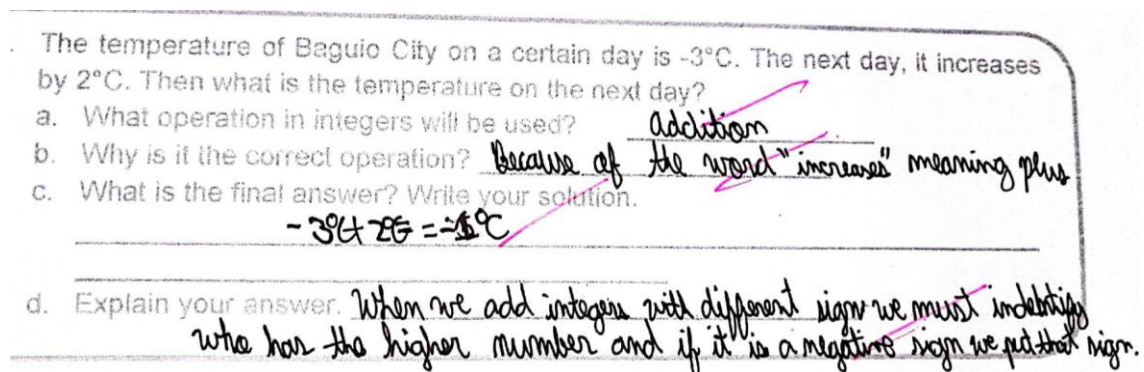 . The temperature of Baguio City on a certain day is -3°C. The next day, it increases
by 2°C. Then what is the temperature on the next day?
a. What operation in integers will be used? addition
b. Why is it the correct operation? Because of the word "increases" meaning plus
c. What is the final answer? Write your solution.
-3°C+ 2°C = -1°C
d. Explain your answer. When we add integers with different sign we must indebtify
who has the higher number and if it is a negative sign we put that sign.